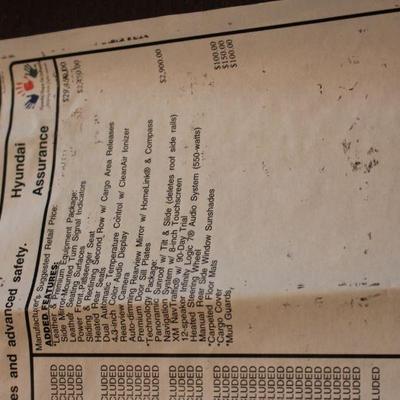 es and advanced safety.
Hyundai
Assurance
Manufacturer's Suggested Retail Price:
ADDED FEATURES:
Leather & Premium Equipment Package:
Side Mirror-Mounted Turn Signal Indicators
Leather Seating Surfaces
Power Front Passenger Seat
Sliding & Reclining Second Row w/ Cargo Area Releases
Heated Rear Seats
Dual Automatic Temperature Control w/ CleanAir Ionizer
4.3-inch Color Audio Display
Rearview Camera
Auto-dimming Rearview Mirror w/ HomeLink® & Compass
Premium Door Sill Plates
*Technology Package:
Panoramic Sunroof w/ Tilt & Slide (deletes roof side rails)
Navigation System w/ 8-inch Touchscreen
XM NavTraffic® w/ 90-Day Trial
12-speaker Infinity Logic 7® Audio System (550-watts)
Heated Steering Wheel
Manual Rear Side Window Sunshades
*Carpeted Floor Mats
*Cargo Cover
*Mud Guards
$2,450.00
$2,900.00
$100.00
$150.00
$100.00
CLUDED
CLUDED
CLUDED
CLUDED
CLUDED
CLUDED
CLUDED
CLUDED
CLUDED
CLUDED
CLUDED
CLUDED
CLUDED
CLUDED
CLUDED
CLUDED
CLUDED